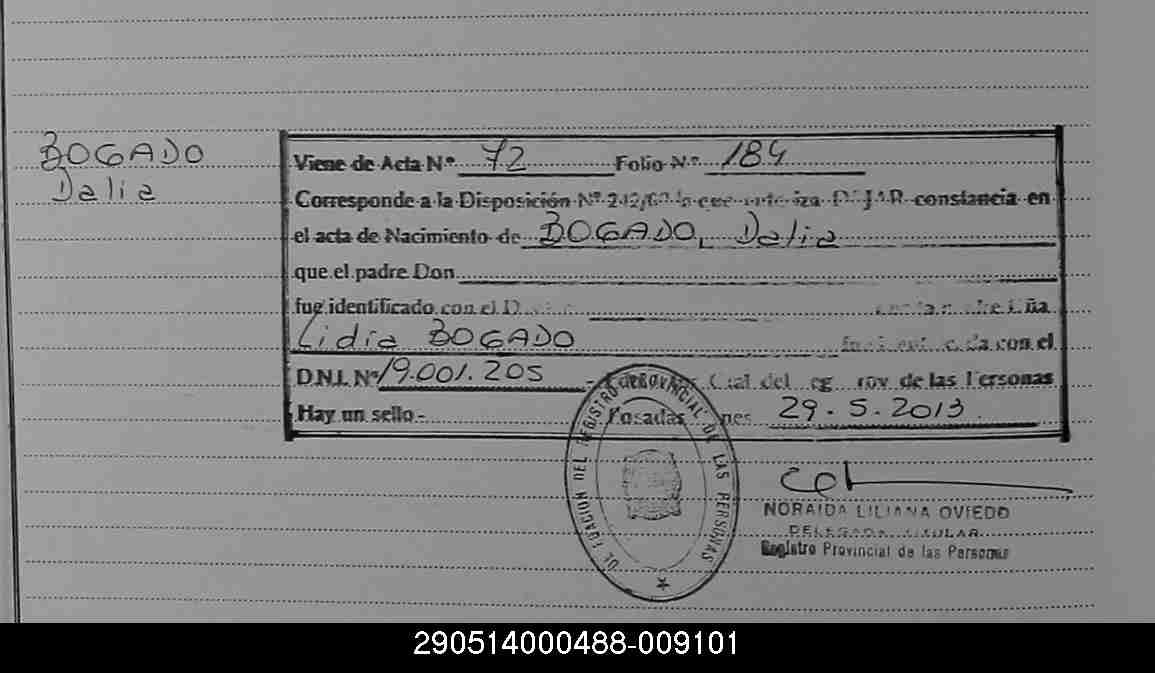 BOGADO
Dalia
Viene de Acta Nº 72 Folio Nº 184
Corresponde a la Disposición Nº constancia en
el acta de Nacimiento de BOGADO, Dalia
que el padre Don
fue identificado con el
Lidia BOGADO con el
D.N.I. Nº 19.001.205 de las Personas
Hay un sello.- Posadas 29.5.2013
DEL REGISTRO PROVINCIAL DE LAS PERSONAS
NORAIDA LILIANA OVIEDO
DELEGADA TITULAR
Registro Provincial de las Personas
290514000488-009101